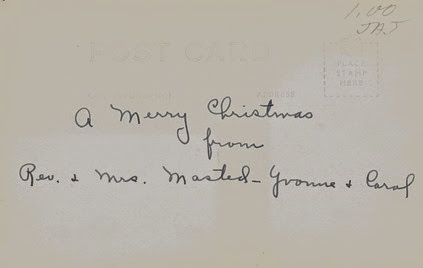 1.00
POST CARD
PLACE
STAMP
HERE
ADDRESS
A Merry Christmas
from
Rev. & Mrs. Masted - Yvonne & Carol